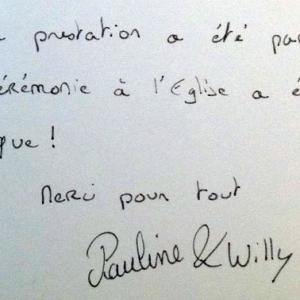 prestation a été par
érémonie à l'Eglise a é
que !
Merci pour tout
Pauline & Willy